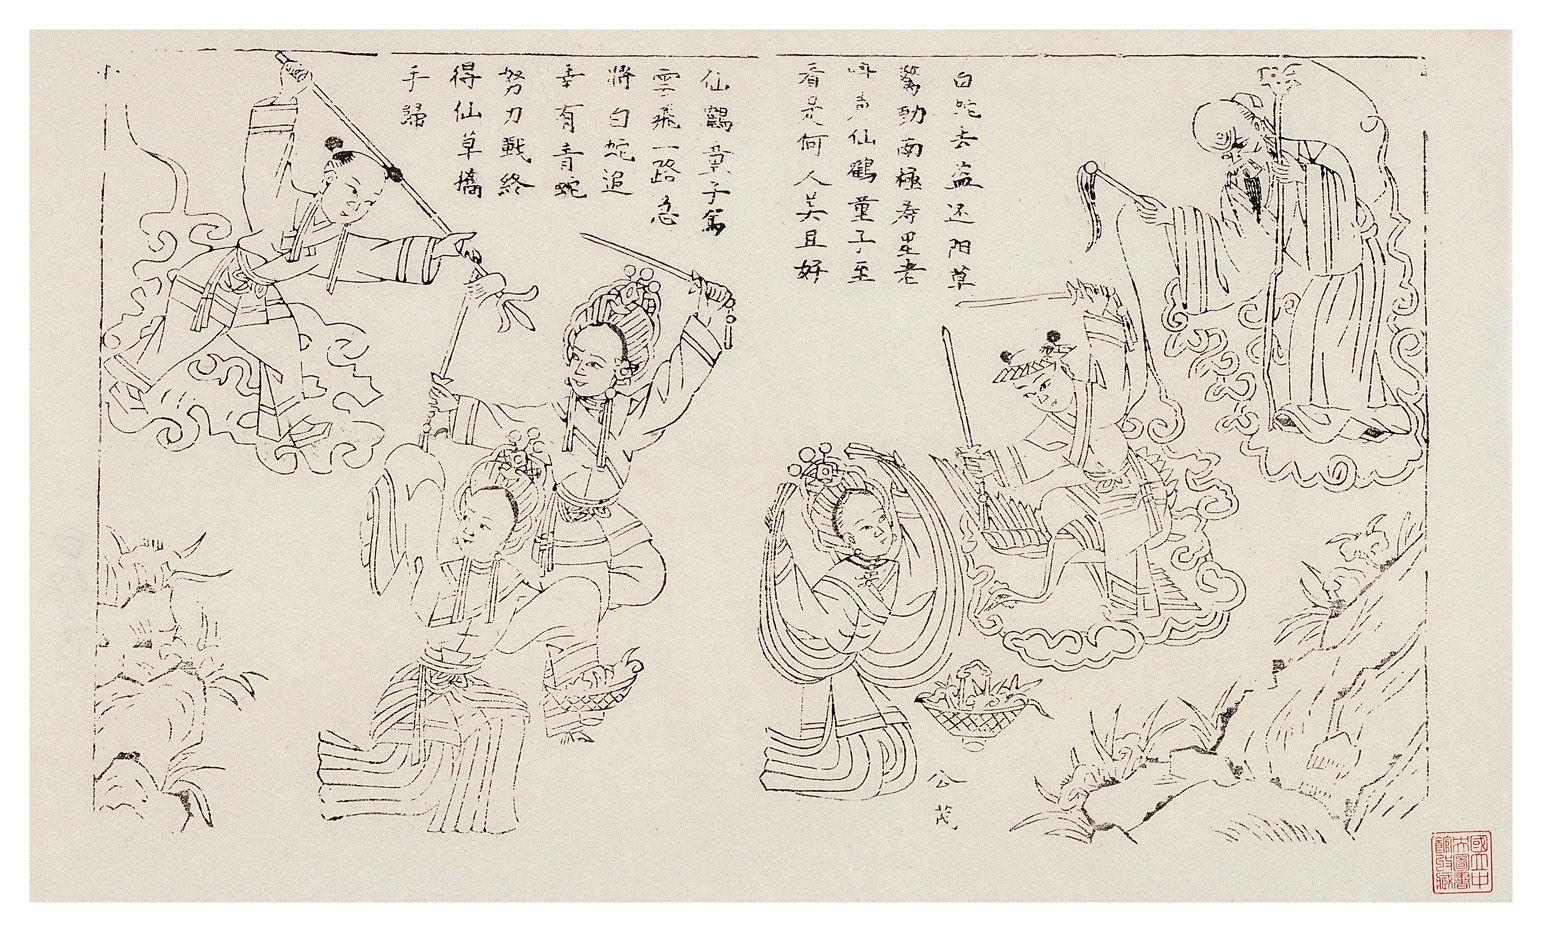 白蛇去盗还阳草
驚動南極寿星老
仙鶴童子至
看是何人美且好
仙鶴童子駕
雲飛一路急
將白蛇追
幸有青蛇
努力戰終
得仙草攜
手歸
公茂
國立中
央圖書
館收藏